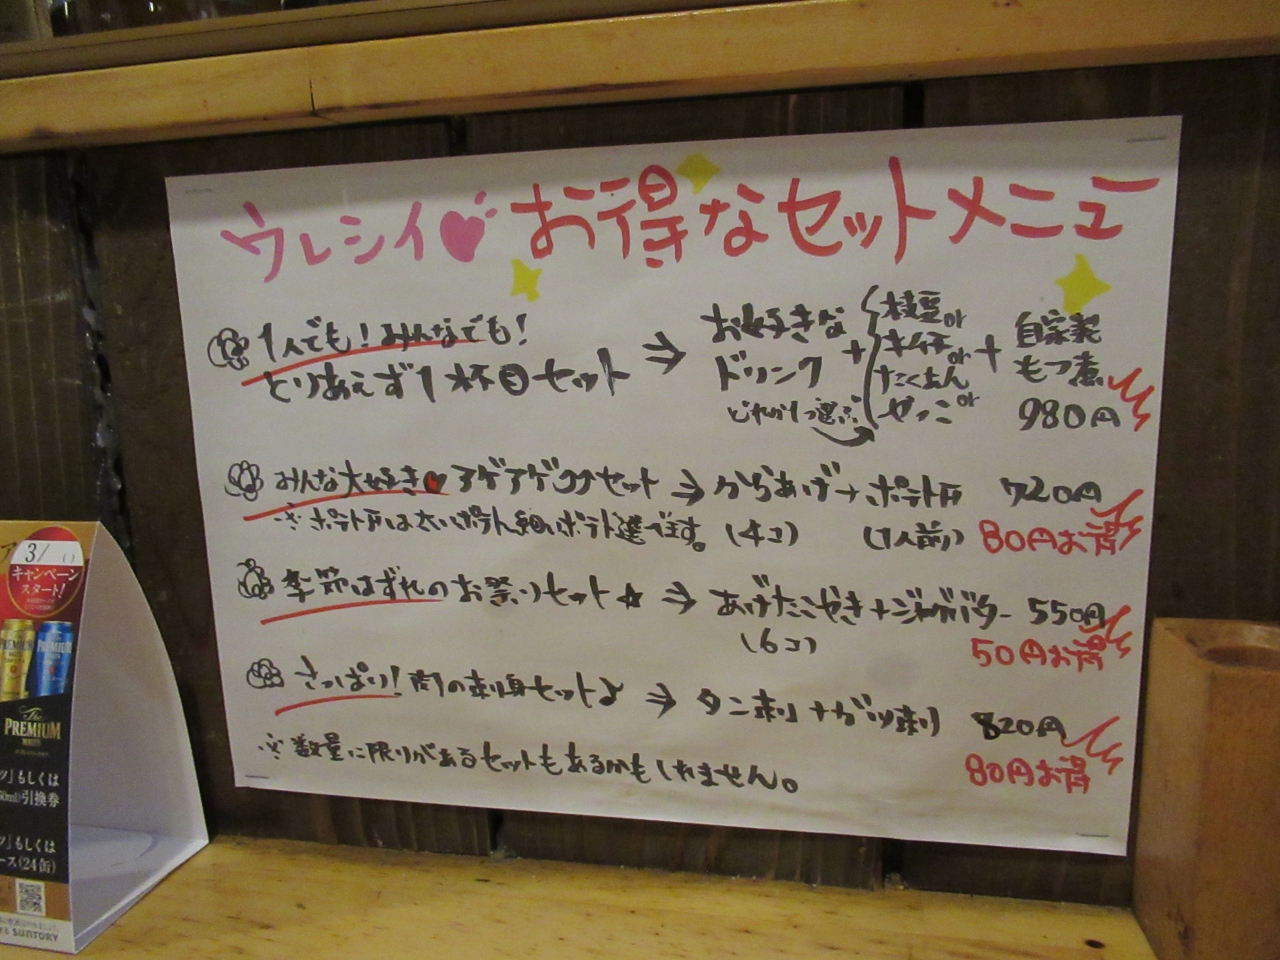 ウレシイ お得なセットメニュー
1人でも!みんなでも!
とりあえず1杯目セット ⇒ お好きなドリンク + 枝豆or キムチor たくあんor ガッこ + 自家製もつ煮
どれか1つ選ぶ
980円
みんな大好き アゲアゲ セット ⇒ からあげ + ポテトF 720円
※ポテトFは太いポテト細いポテト選べます。 (4コ) (1人前) 80円お得
季節はずれのお祭りセット☆ ⇒ あげたこやき+ジャガバター 550円
(6コ) 50円お得
さっぱり!肉の刺身セット♪ ⇒ タン刺+ガツ刺 820円
80円お得
※数量に限りがあるセットもあるかもしれません。
3/
キャンペーン
スタート!
The
PREMIUM
」もしくは
引換券
」もしくは
ース(24缶)
SUNTORY